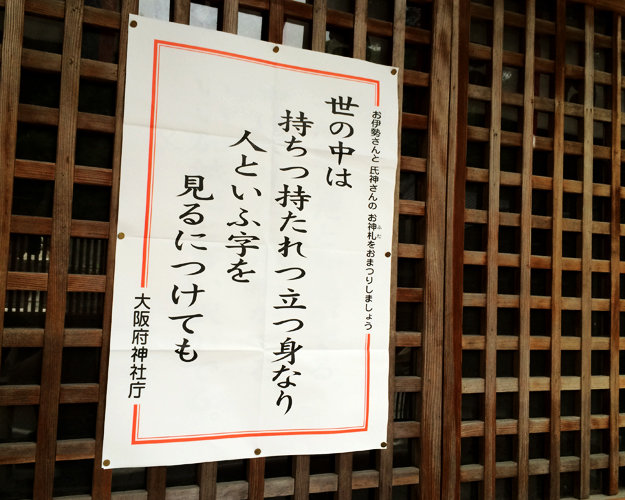 お伊勢さんと 氏神さんの お神札をおまつりしましょう
ふだ
世の中は
持ちつ持たれつ立つ身なり
人といふ字を
見るにつけても
大阪府神社庁